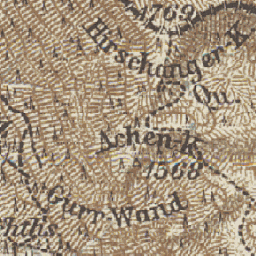 1769
Hirschanger-K.
Qu.
Achen-K.
1568
Gurr-Wand